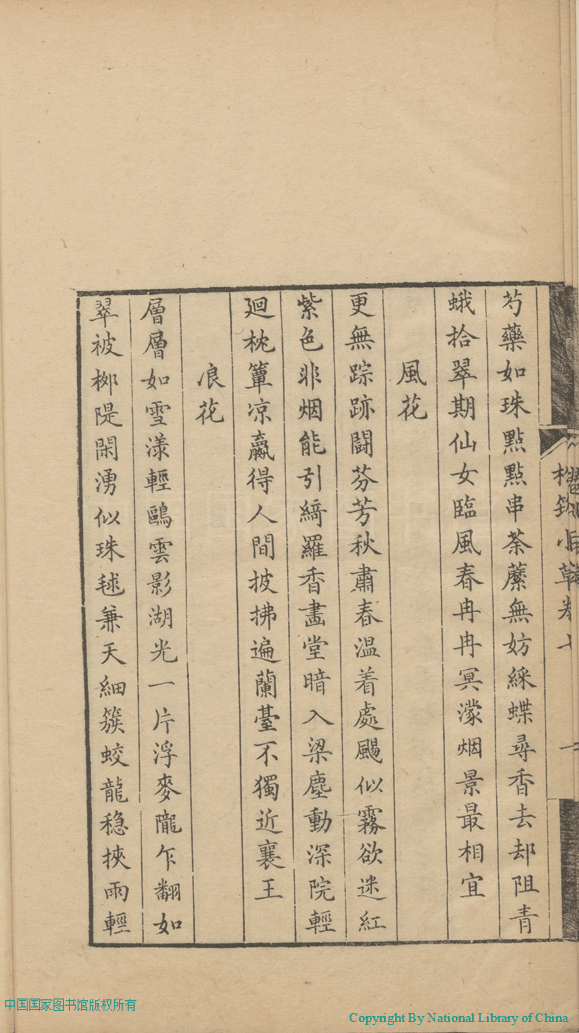 芍藥如珠點點串荼蘼無妨綵蝶尋香去却阻青
蛾拾翠期仙女臨風春冉冉冥濛烟景最相宜
風花
更無踪跡鬪芬芳秋肅春溫着處颺似霧欲迷紅
紫色非烟能引綺羅香畵堂暗入梁塵動深院輕
廻枕簟凉贏得人間披拂遍蘭臺不獨近襄王
浪花
層層如雪漾輕鷗雲影湖光一片浮麥隴乍翻如
翠被栁隄閑湧似珠毬兼天細簇蛟龍穏挾雨輕
中国国家图书馆版权所有
Copyright By National Library of China